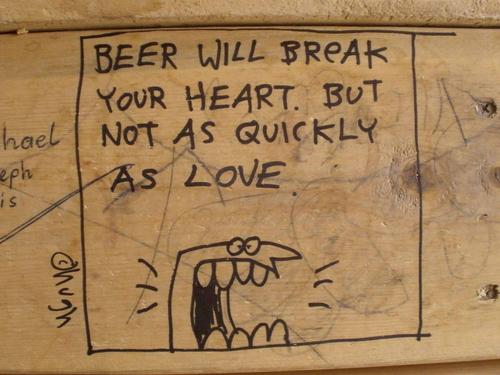 BEER WILL BREAK
YOUR HEART. BUT
NOT AS QUICKLY
AS LOVE.
hael
eph
is
@hugh